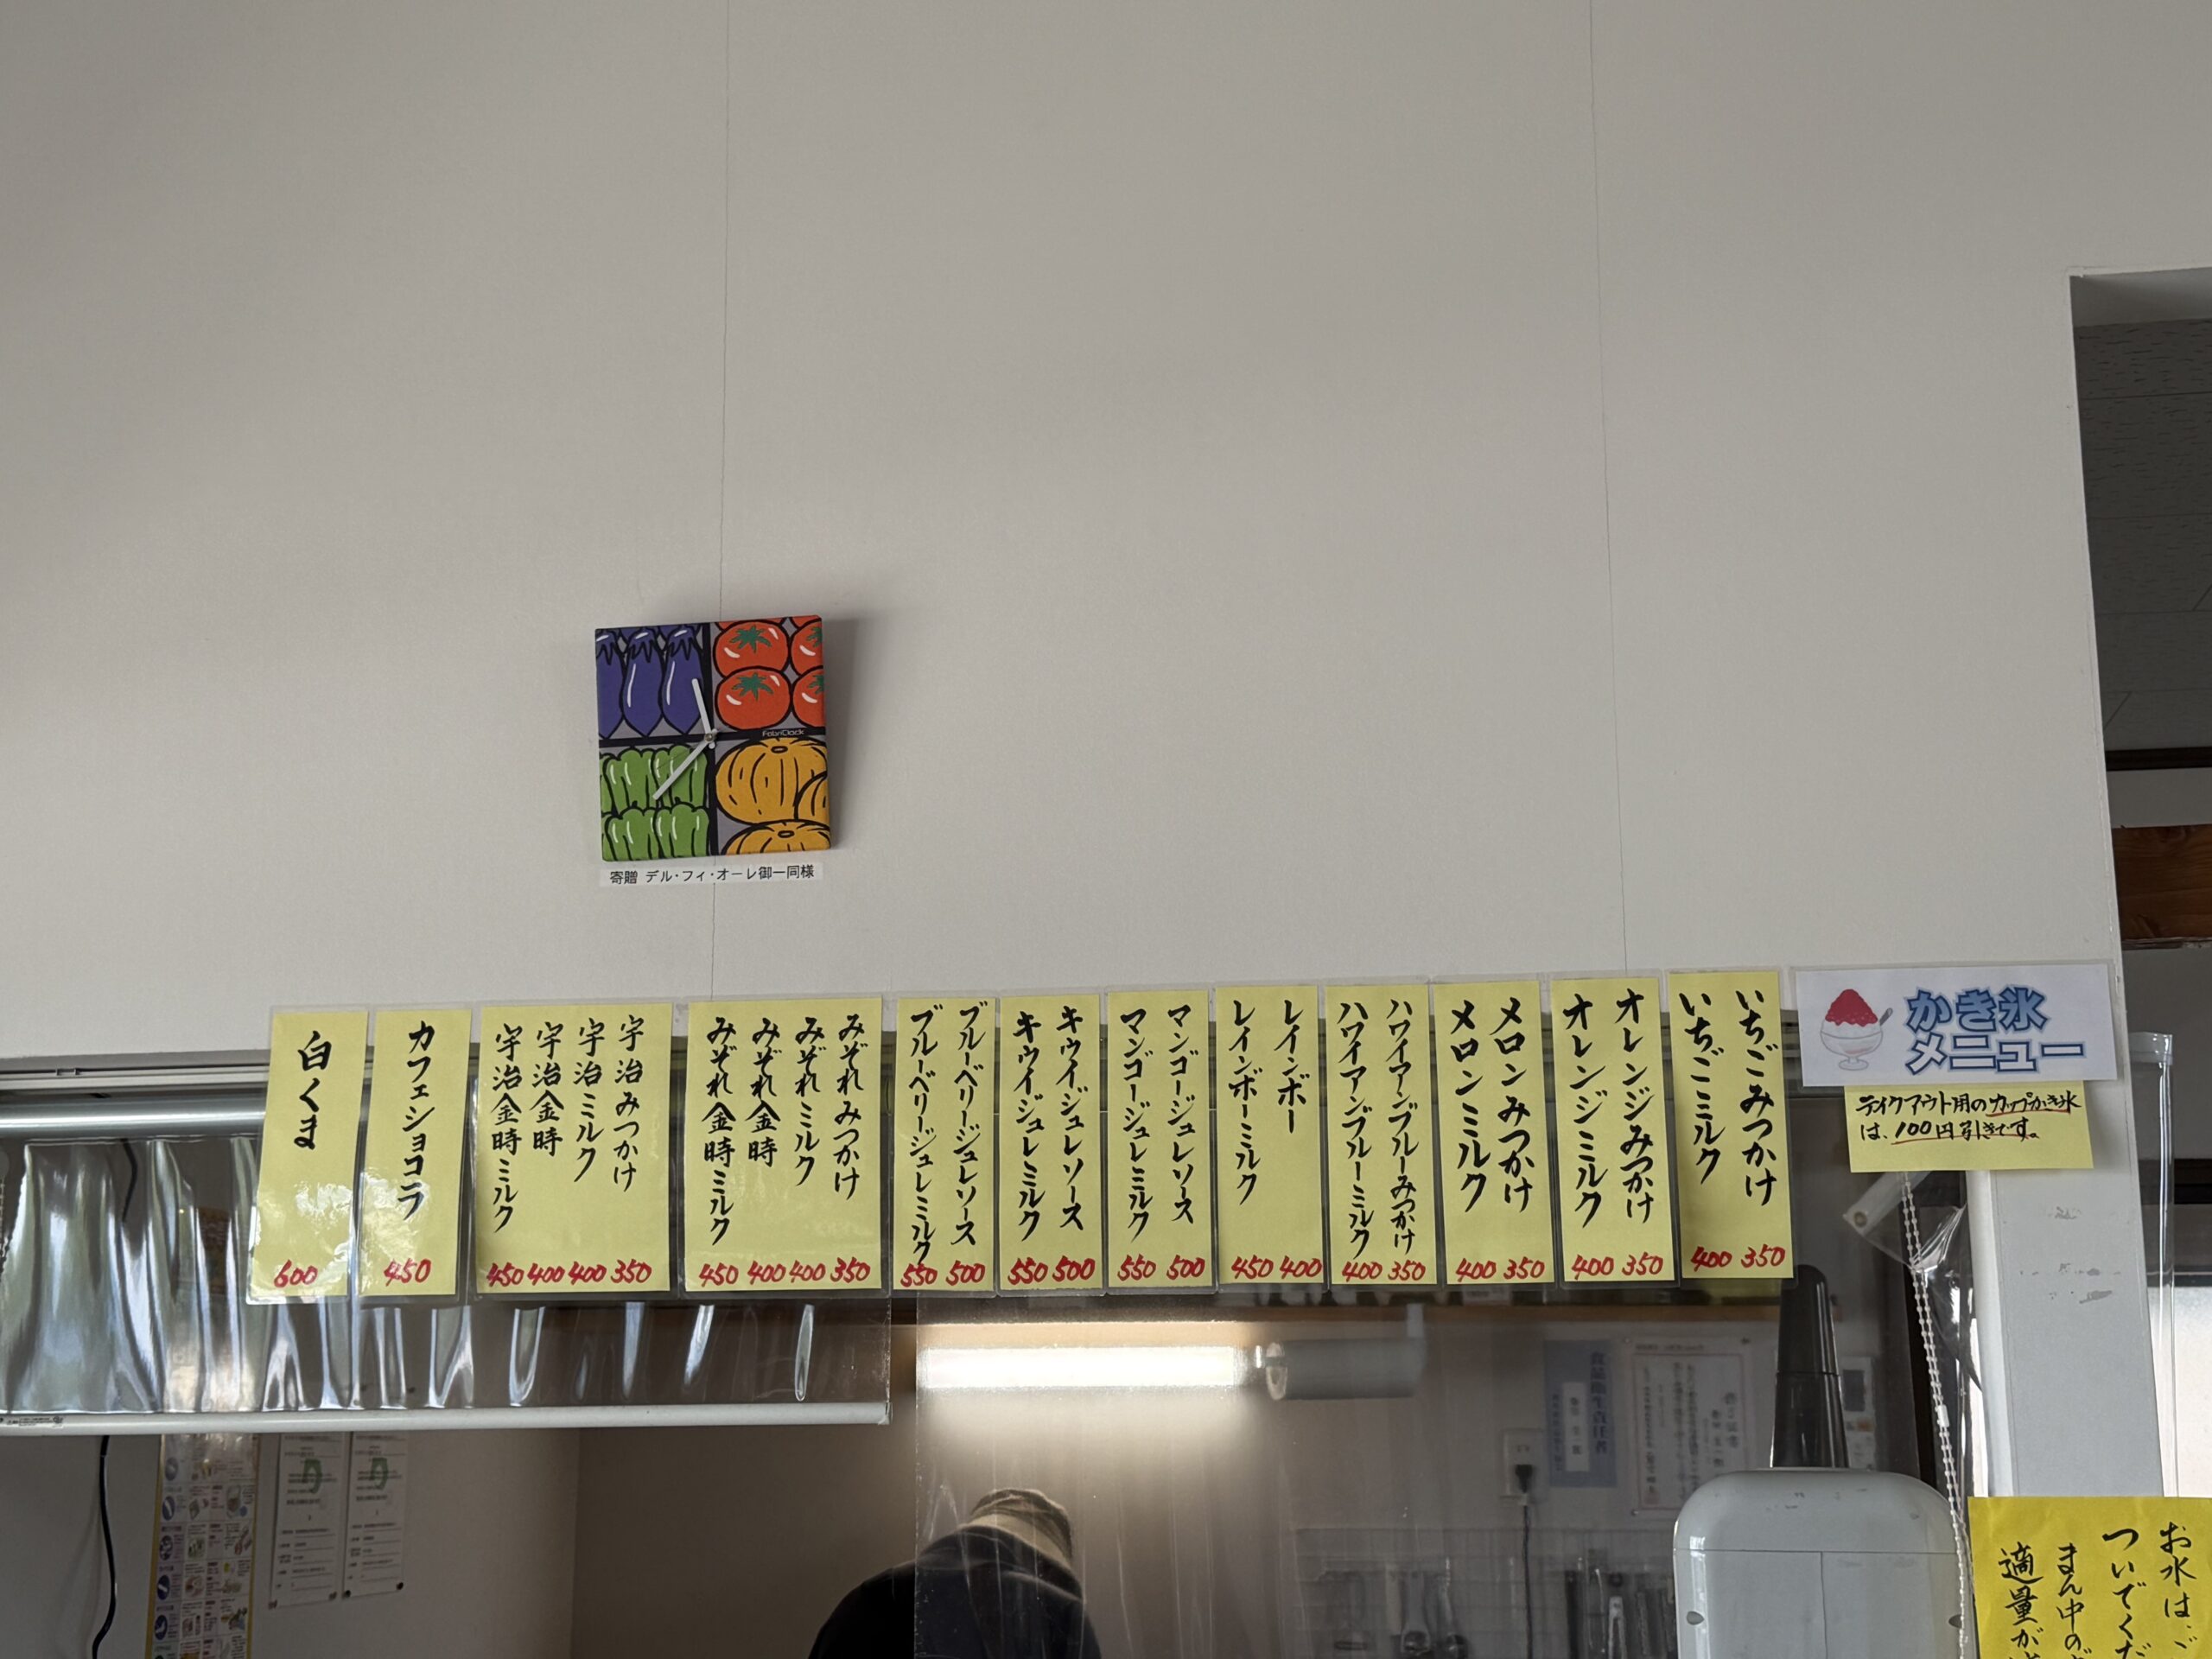 FabriClock
寄贈 デル・フィ・オーレ御一同様
かき氷
メニュー
テイクアウト用のカップかき氷
は、100円引きです。
いちごみつかけ 350
いちごミルク 400
オレンジみつかけ 350
オレンジミルク 400
メロンみつかけ 350
メロンミルク 400
ハワイアンブルーみつかけ 350
ハワイアンブルーミルク 400
レインボー 400
レインボーミルク 450
マンゴージュレソース 500
マンゴージュレミルク 550
キウイジュレソース 500
キウイジュレミルク 550
ブルーベリージュレソース 500
ブルーベリージュレミルク 550
みぞれみつかけ 350
みぞれミルク 400
みぞれ金時 400
みぞれ金時ミルク 450
宇治みつかけ 350
宇治ミルク 400
宇治金時 400
宇治金時ミルク 450
カフェショコラ 450
白くま 600
食品衛生責任者
お水は
ついでくだ
まん中の
適量が